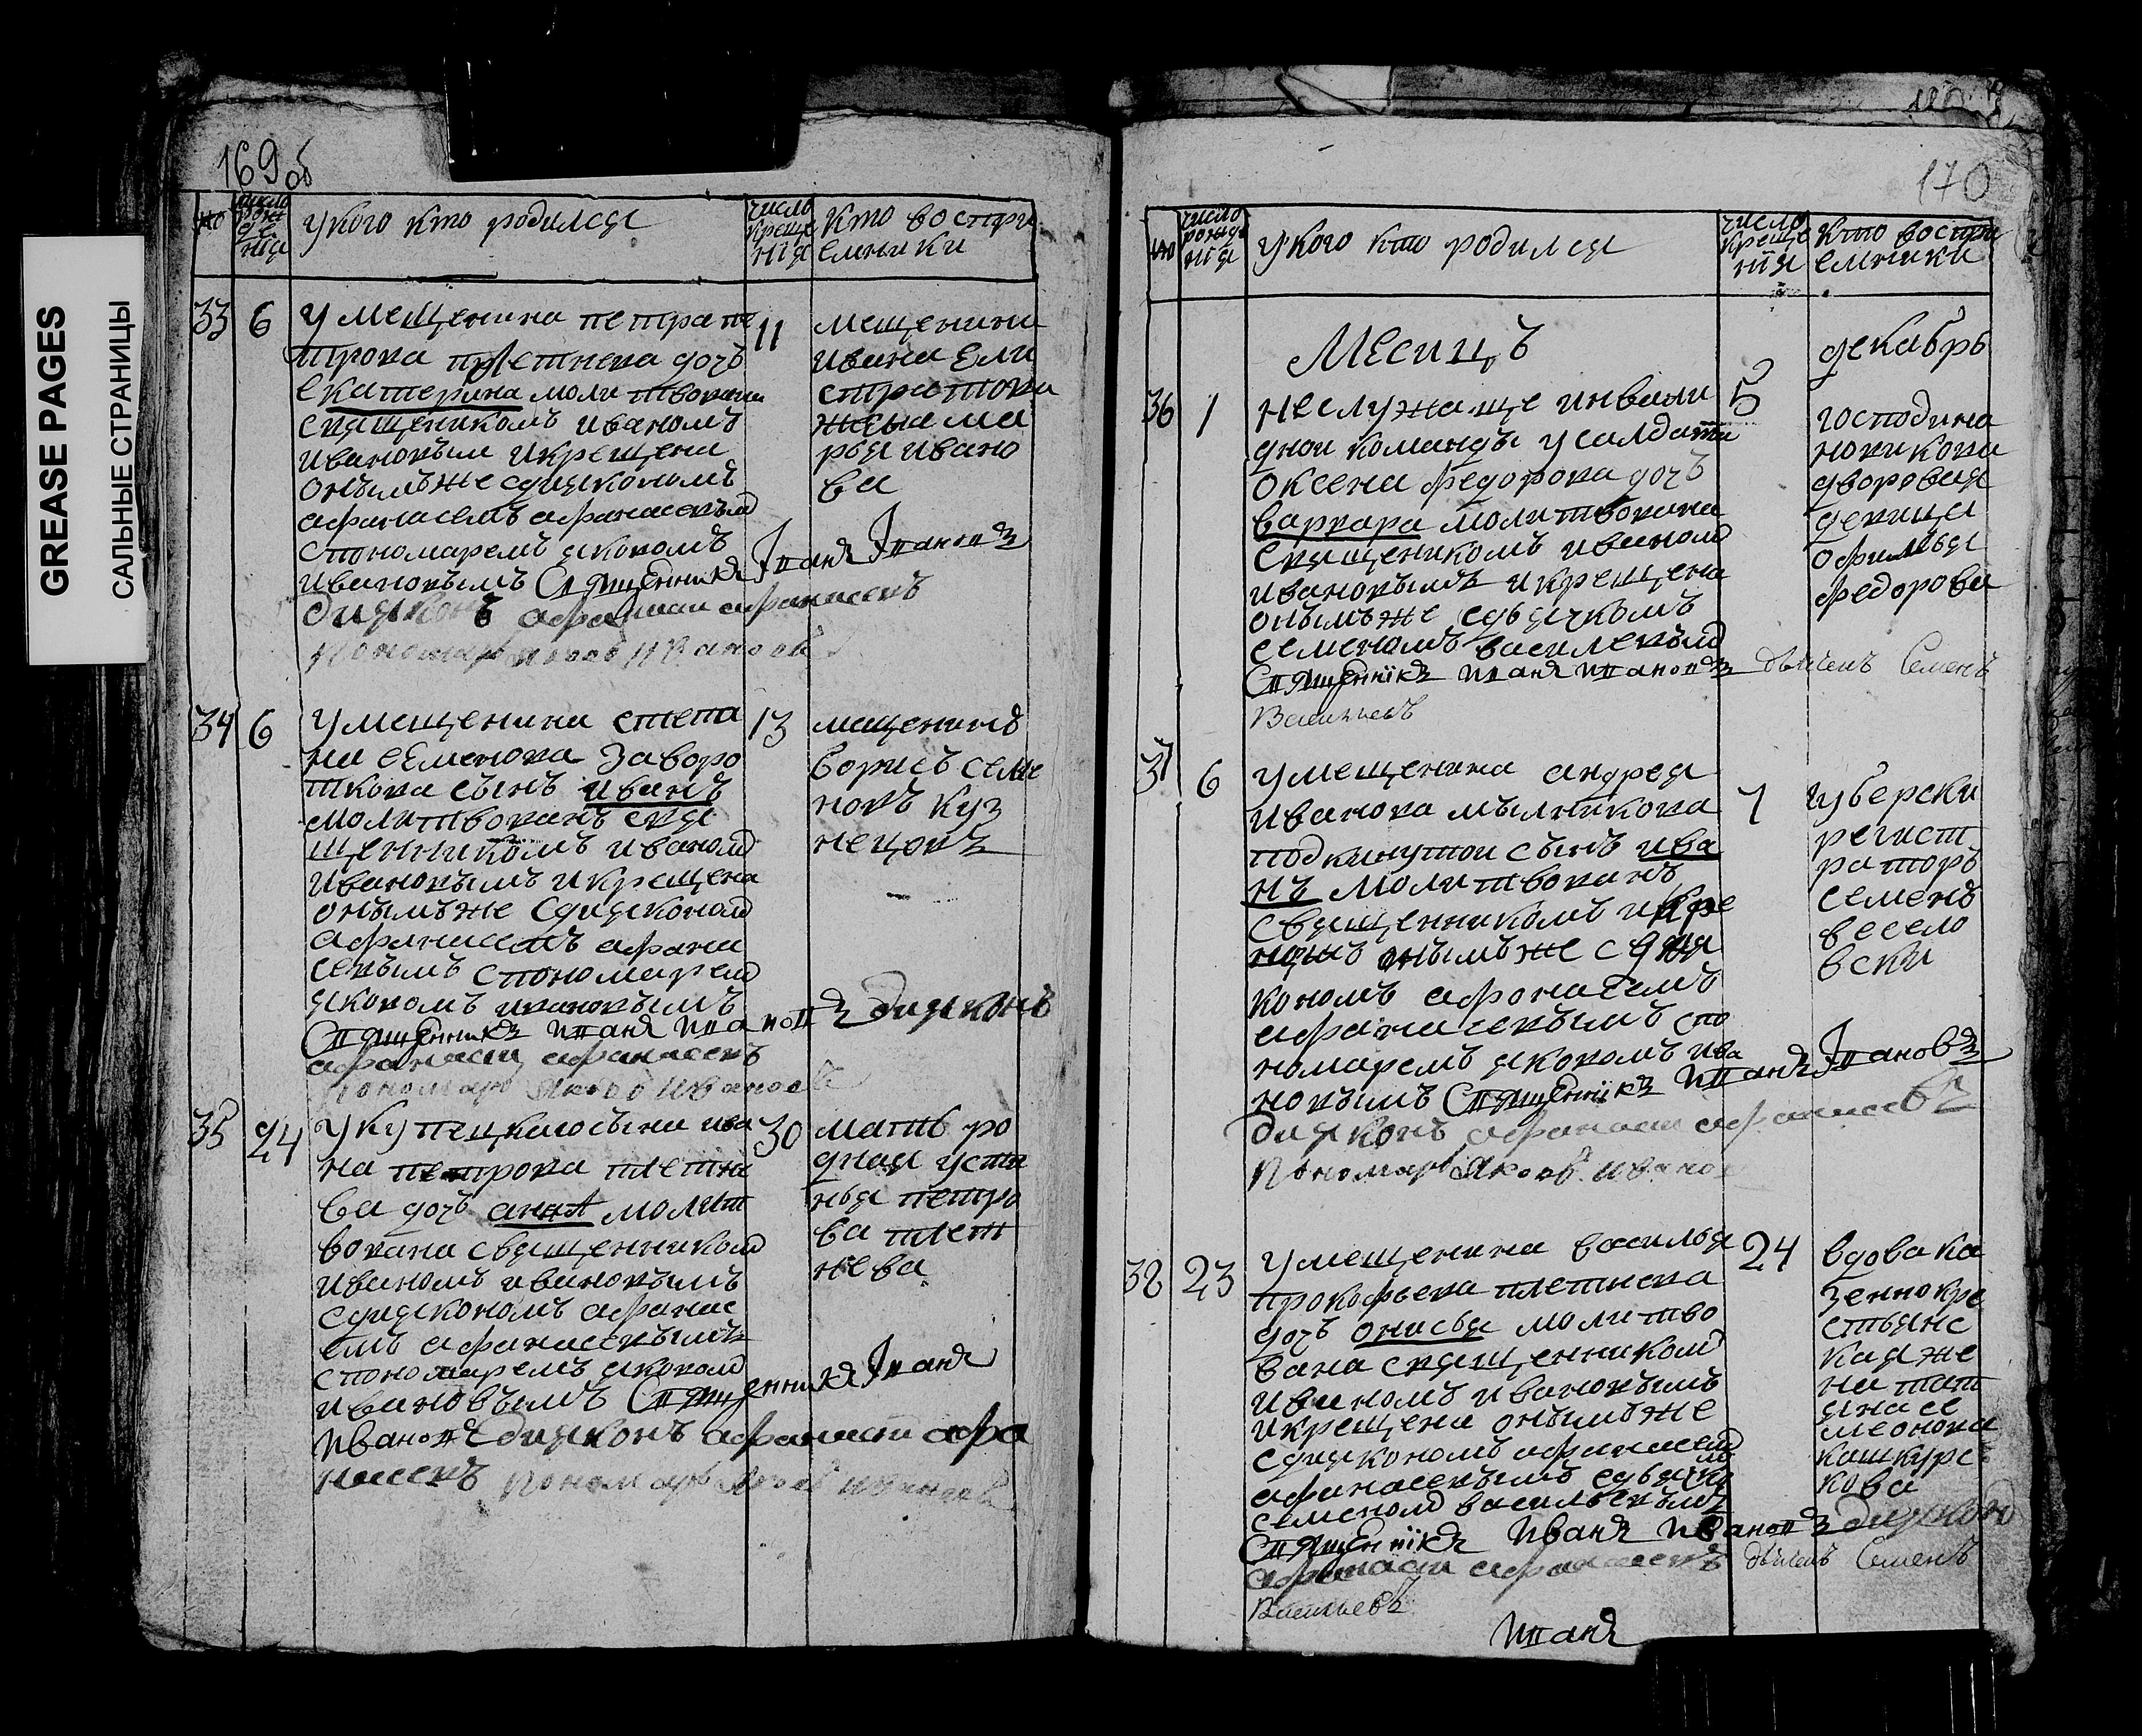 GREASE PAGES
САЛЬНЫЕ СТРАНИЦЫ
169 об
№
число рожде нiя
у кого кто родился
число креще нiя
кто воспри
емники
33 6 у мещенина петра пе 11
трова плетнева дочь
екатерина молитвована
священикомъ иваномъ
ивановым и крещена
онымъ же с диякономъ
афанасемъ афанасевым
с пономаремъ яковомъ
ивановымъ Священникъ Иванъ Ивановъ
дияконъ афанасии афанасевъ
пономарь Яковъ Ивановъ
мещенина
ивана ели
стратова
жена ма
рья ивано
ва
34 6 у мещенина степа 13
на семенова заворо
ткова сынъ иванъ
молитвованъ свя
щенникомъ иваном
ивановымъ и крещена
онымъ же с дияконом
афанасемъ афана
севымъ с пономарем
яковомъ ивановымъ
Священникъ иванъ ивановъ дияконъ
афанасии афанасевъ
пономарь Яковъ Ивановъ
мещенинъ
борисъ семе
новъ куз
нецовъ
35 24 у купецкаго сына ива 30
на петрова плетне
ва дочь анна молит
вована священником
иваномъ ивановымъ
с диякономъ афанас
емъ афанасевымъ
с пономаремъ яковом
ивановымъ Священникъ Иванъ
ивановъ дияконъ афанасии афа
насевъ пономарь Яковъ Ивановъ
мать ро
дная уста
нья петро
ва плет
нева
170
№
число рожде нiя
у кого кто родился
число креще нiя
кто воспри
емники
Месицъ декабрь
36 1 неслужаще инвали 5
днои команды у салдата
оксена федорова дочь
варвара молитвована
священикомъ иваном
ивановымъ и крещена
онымъ же с дьячкомъ
семеномъ василевым
Священнiкъ иванъ ивановъ дьячекъ Семенъ
Васильевъ
господина
новикова
дворовая
девица
офимья
федорова
37 6 у мещенина андрея 7
иванова мылникова
подкинутои сынъ ива
нъ молитвованъ
священникомъ и кре
щенъ онымъ же с дия
кономъ афонасемъ
афанасевымъ с по
номаремъ яковомъ ива
новымъ Священнiкъ иванъ Ивановъ
дияконъ афанасии афанасевъ
пономарь Яковъ Иванов
губерски
регист
раторъ
семенъ
весело
вски
38 23 у мещенина василья 24
прокофьева плетнева
дочь онисья молитво
вана священником
иваномъ ивановымъ
и крещена онымъ же
с диякономъ афанасем
афанасевымъ с дьячко
мъ
семеном васильевымъ
Священнiкъ иванъ ивановъ дияконъ
афанасии афанасевъ дьячекъ Семенъ
Васильевъ
вдова ка
зенно кре
стьянс
кая же
на тат
яна се
меонова
кашкуре
кова
иванъ